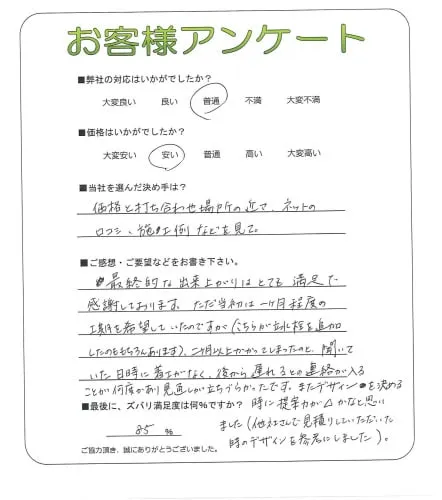 お客様アンケート
■弊社の対応はいかがでしたか?
大変良い 良い 普通 不満 大変不満
■価格はいかがでしたか?
大変安い 安い 普通 高い 大変高い
■当社を選んだ決め手は?
価格と打ち合わせ場所の近さ、ネットの
口コミ、施工例などを見て。
■ご感想・ご要望などをお書き下さい。
最終的な出来上がりはとても満足で
感謝しております。ただ当初は一ヶ月程度の
工期を希望していたのですが(こちらが立水栓を追加
したのももちろんあります)、二ヶ月以上かかってしまったのと、聞いて
いた日時に着工がなく、後から遅れるとの連絡が入る
ことが何度かあり見通しが立ちづらかったです。またデザインを決める
■最後に、ズバリ満足度は何%ですか? 時に提案力が△かなと思い
85 % ました(他社さんで見積りしていただいた
ご協力頂き、誠にありがとうございました。 時のデザインを参考にしました)。